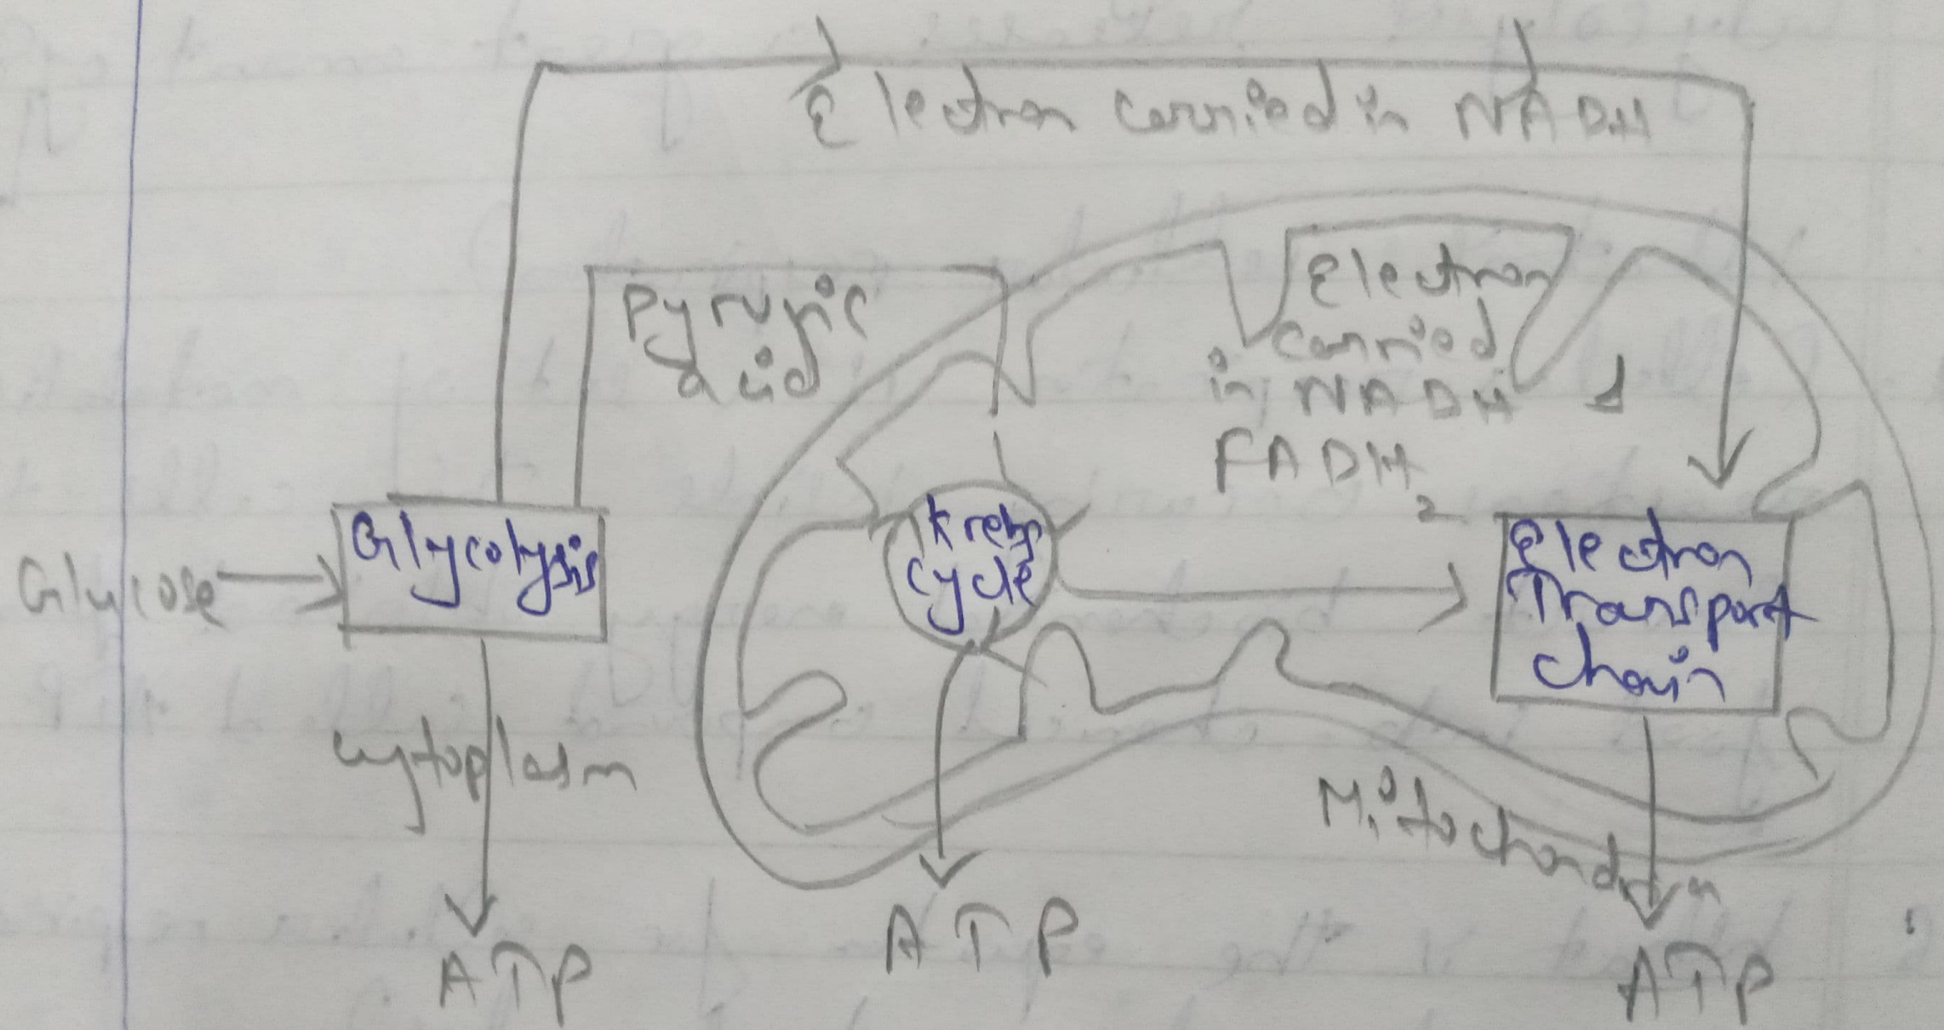 Electron carried in NADH
Pyruvic
acid
Electron
carried
in NADH
FADH2
Glucose
Glycolysis
Kreb's
cycle
Electron
Transport
chain
cytoplasm
Mitochondrion
ATP
ATP
ATP